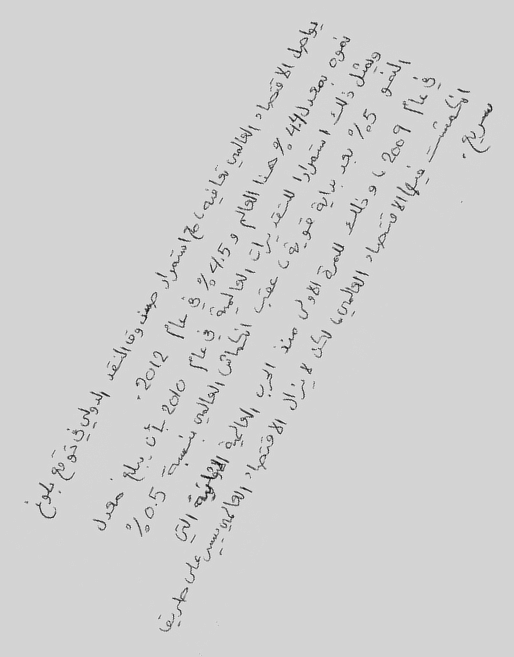 يواصل الاقتصاد العالمي تعافيه، مع استمرار صندوق النقد الدولي في توقع بلوغ
نموه بمعدل 4.4% هذا العام و 4.5% في عام 2012.
ويمثل ذلك استمرارا للتقديرات العالمية في عام 2010 حيث بلغ معدل
النمو 5% بعد بداية قوية، عقب انكماش العالمي بنسبة 0.5%
في عام 2009، وذلك للمرة الأولى منذ الحرب العالمية الثانية التي
انكمشت فيها الاقتصاد العالمي، لكن لا يزال الاقتصاد العالمي يسير على طريق
سريع.